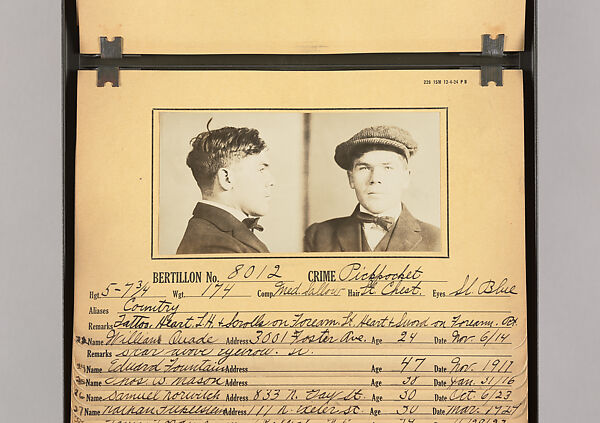 228 15M 12-4-24 P B
BERTILLON No. 8012 CRIME Pickpocket
Hgt. 5-7 3/4 Wgt. 174 Comp. Med. Sallow Hair Lt Chest. Eyes Sl. Blue
Aliases Country
Remarks Tattoo. Heart. L.H. & Scrolls on Forearm. Heart & Sword on Forearm.
Name William Quade Address 3001 Foster Ave. Age 24 Date Nov. 6/14
Remarks Scar above eyebrow.
Name Edward Fountain Address Age 47 Date Nov. 1911
Name Thos. W. Mason Address Age 38 Date Jan. 31/16
26 Name Samuel Norwitch Address 833 N. Age 30 Date Oct. 6/23
27 Name Nathan Address Age 30 Date Mar.